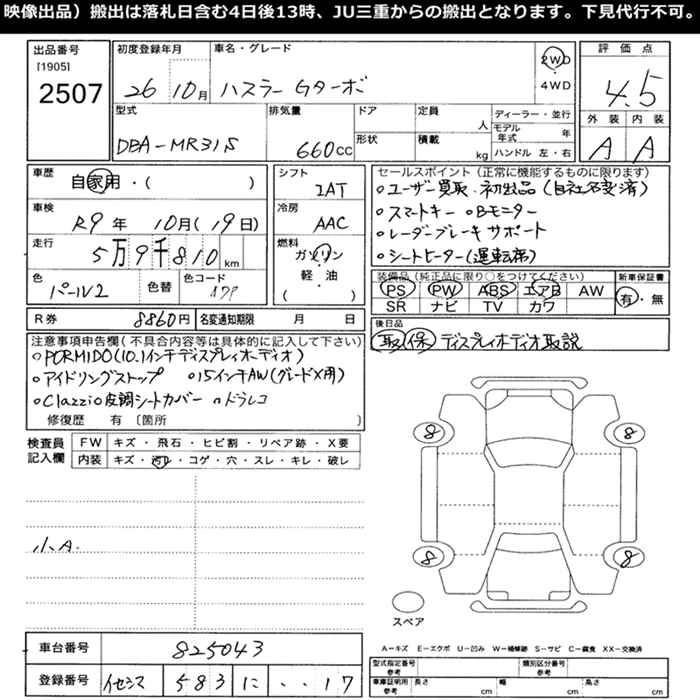 映像出品）搬出は落札日含む4日後13時、JU三重からの搬出となります。下見代行不可。
出品番号
[1905]
2507
初度登録年月
26 10月
車名・グレード
ハスラー Gターボ
2WD
4WD
評価点
4.5
外装 内装
A A
型式
DBA-MR31S
排気量
660cc
ドア
形状
定員
人
積載
kg
ディーラー・並行
モデル年式 年
ハンドル 左・右
車歴
自家用・( )
車検
R9年 10月(19日)
走行
5万9千810km
色
パール2
色替
色コード
シフト
IAT
冷房
AAC
燃料
ガソリン
軽・油
( )
セールスポイント（正常に機能するものに限ります）
○ユーザー買取 初出品（自社名変済）
○スマートキー ○Bモニター
○レーダーブレーキサポート
○シートヒーター(運転席)
装備品（純正品に限り○をつけてください）
PS PW ABS エアB AW
SR ナビ TV カワ
新車保証書
有・無
R券
8860円
名変通知期限 月 日
後日品
取 保 ディスプレイオーディオ取説
注意事項申告欄（不具合内容等は具体的に記入して下さい）
○PORMIDO(10.1インチディスプレイオーディオ)
○アイドリングストップ ○15インチAW(グレードX用)
○Clazzio皮調シートカバー ○ドラレコ
修復歴 有 〔箇所
検査員記入欄
FW キズ・飛石・ヒビ割・リペア跡・X要
内装 キズ・汚レ・コゲ・穴・スレ・キレ・破レ
小A.
8 8
8 8
スペア
車台番号
825043
登録番号
イセシマ 583 に ・・17
A－キズ E－エクボ U－凹み W－補修跡 S－サビ C－腐食 XX－交換済
型式指定番号 参考
類別区分番号 参考
車庫証明用 参考
長さ cm 幅 cm 高さ cm